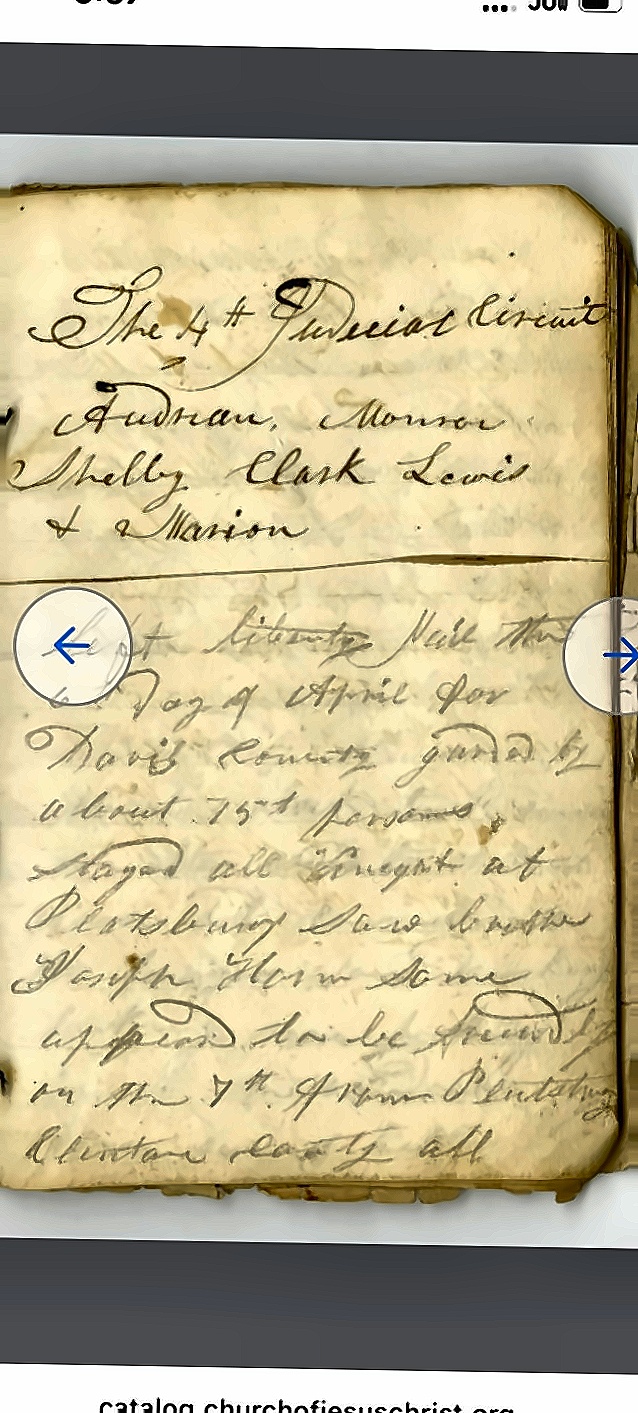 The 4th Judicial Circuit
Audrian, Monroe
Shelby Clark Lewis
& Marion
Left Liberty Jail the
Day of April for
Davis County garded by
about 75t persons,
stayed all knight at
Platsburg Saw brother
Joseph Horn Some
appeard to be friendly
on the 7th from Platsburg
Clinton County all
catalog.churchofjesuschrist.org